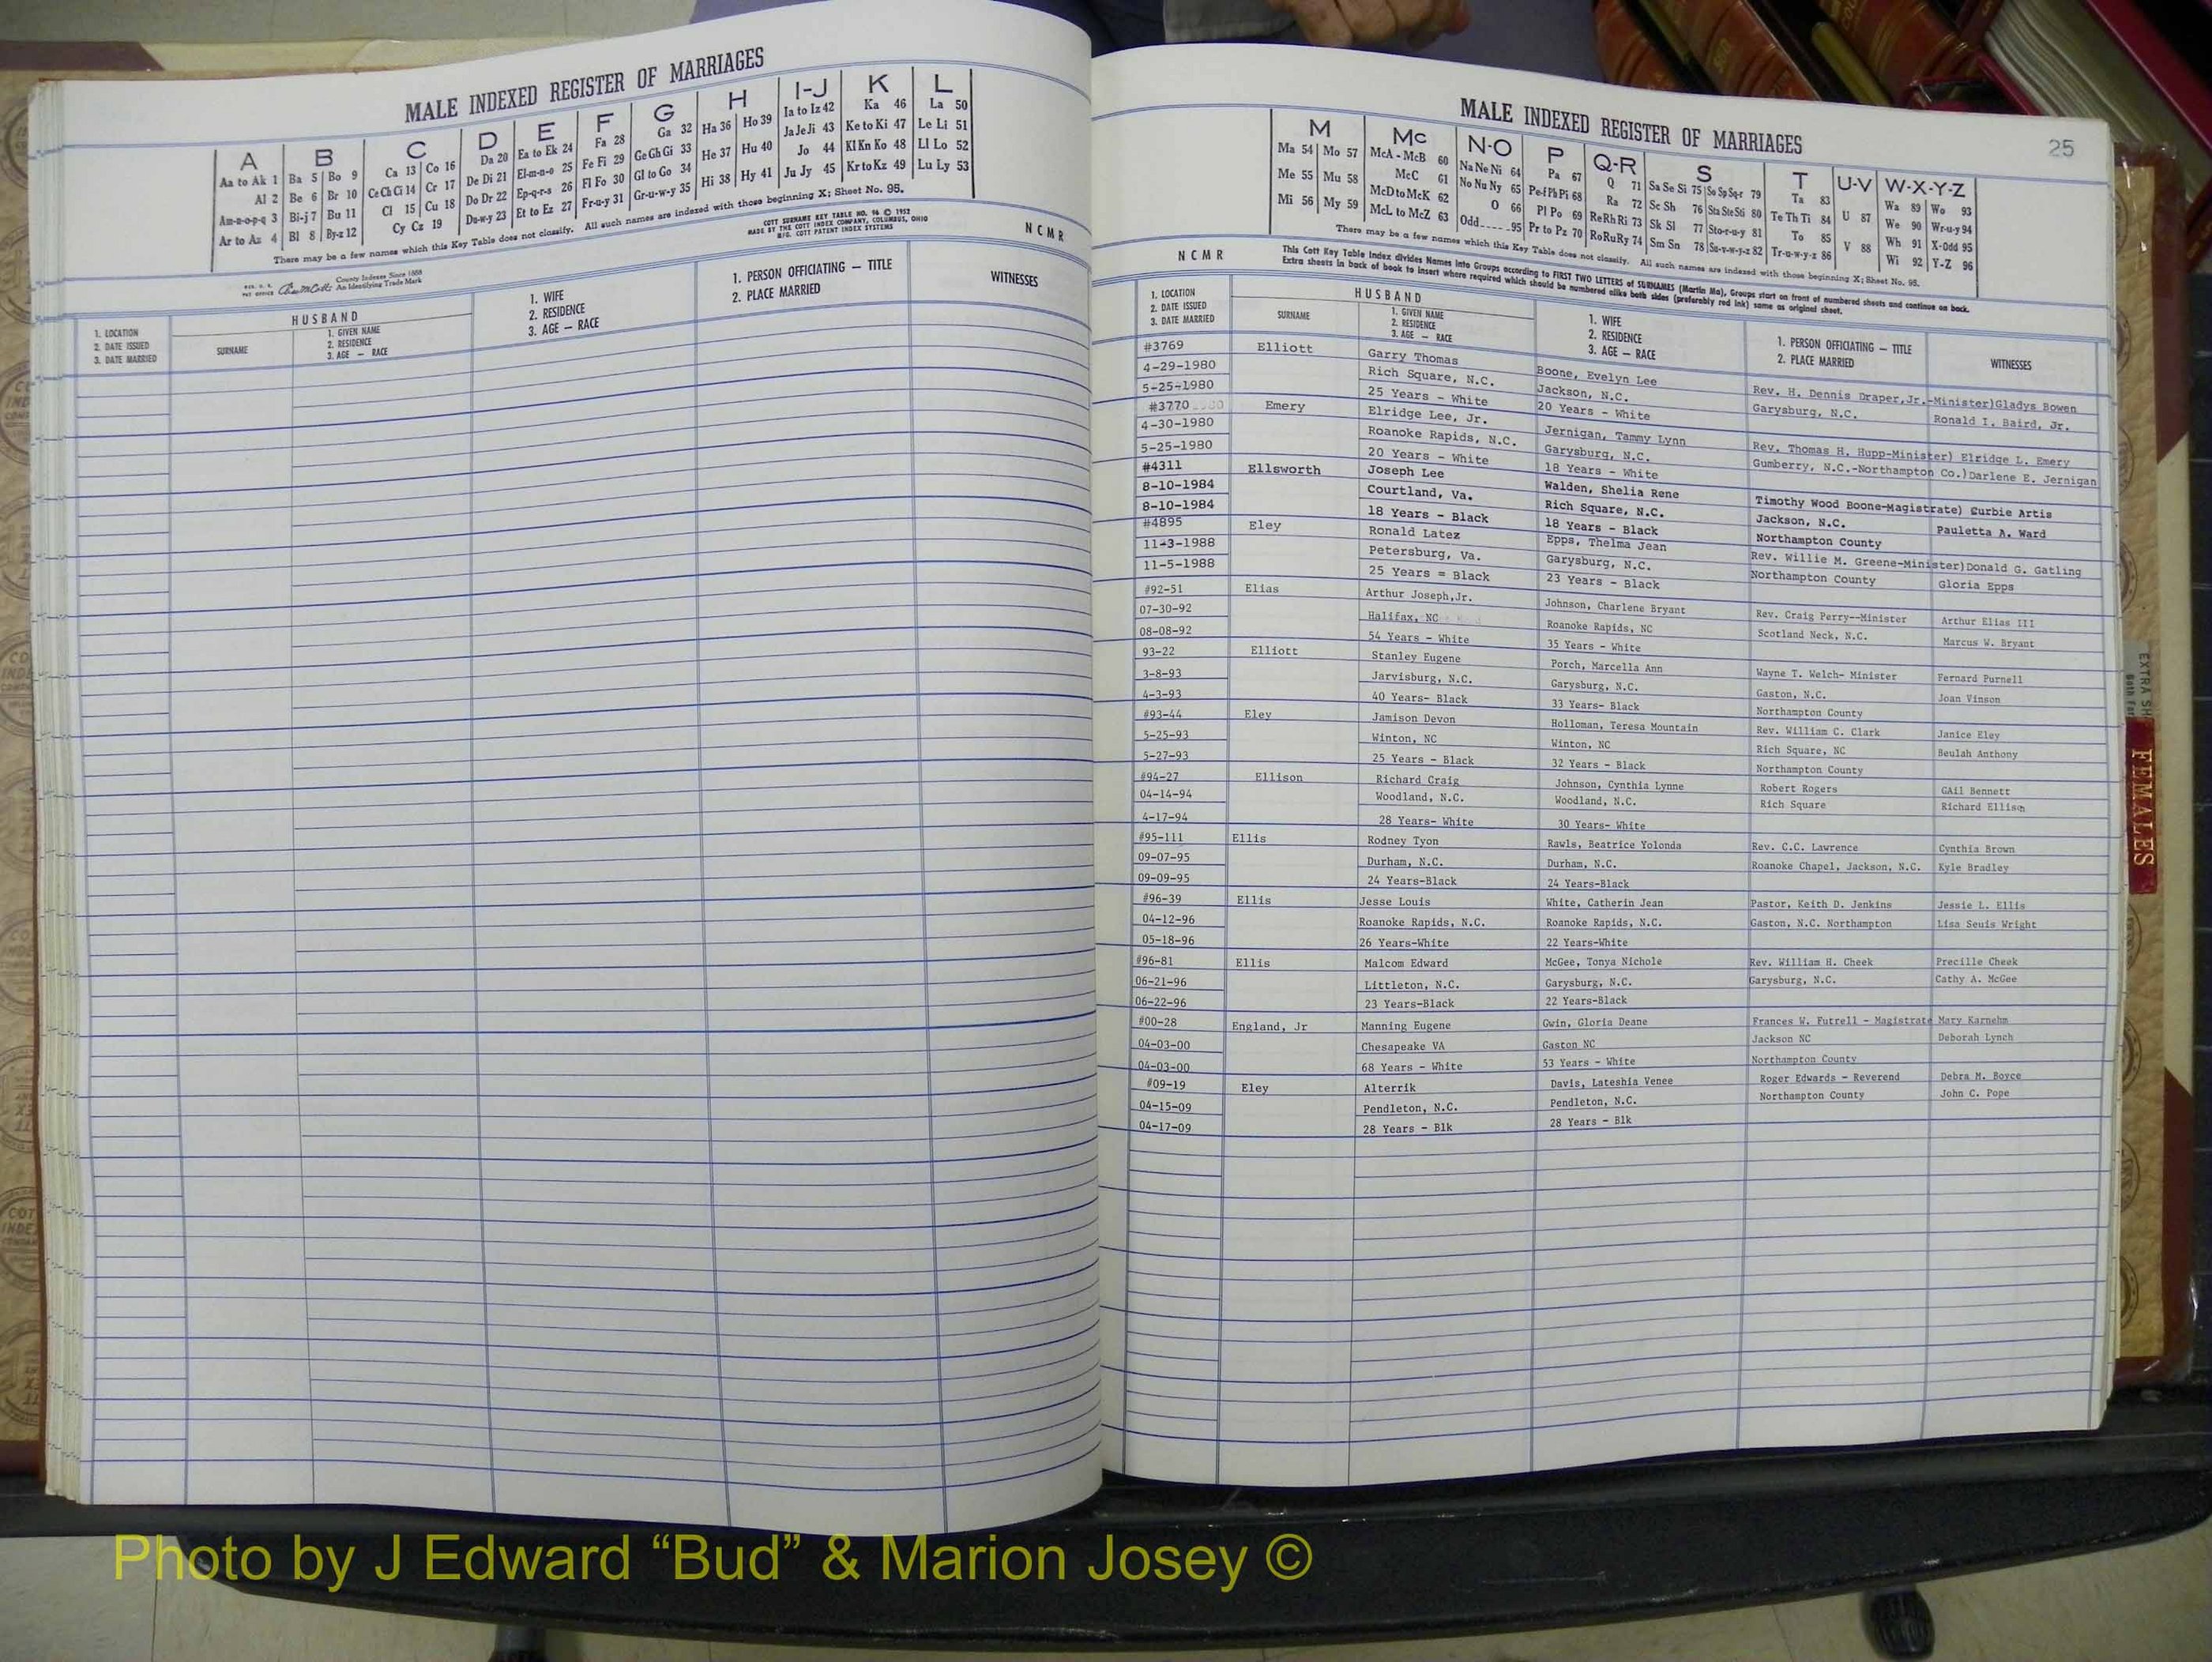 MALE INDEXED REGISTER OF MARRIAGES
A B C D E F G H I-J K L
Aa to Ak 1 Ba 5 Bo 9 Ca 13 Co 16 Da 20 Ea to Ek 24 Fa 28 Ga 32 Ha 36 Ho 39 Ia to Iz 42 Ka 46 La 50
Al 2 Be 6 Br 10 Ce Ch Ci 14 Cr 17 De Di 21 El-m-n-o 25 Fe Fi 29 Ge Gh Gi 33 He 37 Hu 40 Ja Je Ji 43 Ke to Ki 47 Le Li 51
Am-n-o-p-q 3 Bi-j 7 Bu 11 Cl 15 Cu 18 Do Dr 22 Ep-q-r-s 26 Fl Fo 30 Gl to Go 34 Hi 38 Hy 41 Jo 44 Kl Kn Ko 48 Ll Lo 52
Ar to Az 4 Bl 8 By-z 12 Cy Cz 19 Du-w-y 23 Et to Ez 27 Fr-u-y 31 Gr-u-w-y 35 Ju Jy 45 Kr to Kz 49 Lu Ly 53
There may be a few names which this Key Table does not classify. All such names are indexed with those beginning X; Sheet No. 95.
COTT SURNAME KEY TABLE NO. 96 © 1952
MADE BY THE COTT INDEX COMPANY, COLUMBUS, OHIO
MFG. COTT PATENT INDEX SYSTEMS
N C M R
County Indexes Since 1888
An Identifying Trade Mark
1. LOCATION
2. DATE ISSUED
3. DATE MARRIED
HUSBAND
SURNAME
1. GIVEN NAME
2. RESIDENCE
3. AGE — RACE
1. WIFE
2. RESIDENCE
3. AGE — RACE
1. PERSON OFFICIATING — TITLE
2. PLACE MARRIED
WITNESSES
MALE INDEXED REGISTER OF MARRIAGES
25
M Mc N-O P Q-R S T U-V W-X-Y-Z
Ma 54 Mo 57 McA - McB 60 Na Ne Ni 64 Pa 67 Q 71 Sa Se Si 75 So Sp Sq-r 79 Ta 83 U 87 Wa 89 Wo 93
Me 55 Mu 58 McC 61 No Nu Ny 65 Pe-f Ph Pi 68 Ra 72 Sc Sh 76 Sta Ste Sti 80 Te Th Ti 84 V 88 We 90 Wr-u-y 94
Mi 56 My 59 McD to McK 62 O 66 Pl Po 69 Re Rh Ri 73 Sk Sl 77 Sto-r-u-y 81 To 85 Wh 91 X-Odd 95
McL to McZ 63 Odd 95 Pr to Pz 70 Ro Ru Ry 74 Sm Sn 78 Su-v-w-y-z 82 Tr-u-w-y-z 86 Wi 92 Y-Z 96
There may be a few names which this Key Table does not classify. All such names are indexed with those beginning X; Sheet No. 95.
N C M R
This Cott Key Table Index divides Names into Groups according to FIRST TWO LETTERS of SURNAMES (Martin Ma), Groups start on front of numbered sheets and continue on back.
Extra sheets in back of book to insert where required which should be numbered alike both sides (preferably red ink) same as original sheet.
1. LOCATION
2. DATE ISSUED
3. DATE MARRIED
HUSBAND
SURNAME
1. GIVEN NAME
2. RESIDENCE
3. AGE — RACE
1. WIFE
2. RESIDENCE
3. AGE — RACE
1. PERSON OFFICIATING — TITLE
2. PLACE MARRIED
WITNESSES
#3769 Elliott Garry Thomas Boone, Evelyn Lee Rev. H. Dennis Draper,Jr.-Minister)Gladys Bowen
4-29-1980 Rich Square, N.C. Jackson, N.C. Garysburg, N.C. Ronald I. Baird, Jr.
5-25-1980 25 Years - White 20 Years - White
#3770 Emery Elridge Lee, Jr. Jernigan, Tammy Lynn Rev. Thomas H. Hupp-Minister) Elridge L. Emery
4-30-1980 Roanoke Rapids, N.C. Garysburg, N.C. Gumberry, N.C.-Northampton Co.)Darlene E. Jernigan
5-25-1980 20 Years - White 18 Years - White
#4311 Ellsworth Joseph Lee Walden, Shelia Rene Timothy Wood Boone-Magistrate) Curbie Artis
8-10-1984 Courtland, Va. Rich Square, N.C. Jackson, N.C. Pauletta A. Ward
8-10-1984 18 Years - Black 18 Years - Black Northampton County
#4895 Eley Ronald Latez Epps, Thelma Jean Rev. Willie M. Greene-Minister)Donald G. Gatling
11-3-1988 Petersburg, Va. Garysburg, N.C. Northampton County Gloria Epps
11-5-1988 25 Years = Black 23 Years - Black
#92-51 Elias Arthur Joseph,Jr. Johnson, Charlene Bryant Rev. Craig Perry--Minister Arthur Elias III
07-30-92 Halifax, NC Roanoke Rapids, NC Scotland Neck, N.C. Marcus W. Bryant
08-08-92 54 Years - White 35 Years - White
93-22 Elliott Stanley Eugene Porch, Marcella Ann Wayne T. Welch- Minister Fernard Purnell
3-8-93 Jarvisburg, N.C. Garysburg, N.C. Gaston, N.C. Joan Vinson
4-3-93 40 Years- Black 33 Years- Black Northampton County
#93-44 Eley Jamison Devon Holloman, Teresa Mountain Rev. William C. Clark Janice Eley
5-25-93 Winton, NC Winton, NC Rich Square, NC Beulah Anthony
5-27-93 25 Years - Black 32 Years - Black Northampton County
#94-27 Ellison Richard Craig Johnson, Cynthia Lynne Robert Rogers GAil Bennett
04-14-94 Woodland, N.C. Woodland, N.C. Rich Square Richard Ellison
4-17-94 28 Years- White 30 Years- White
#95-111 Ellis Rodney Tyon Rawls, Beatrice Yolonda Rev. C.C. Lawrence Cynthia Brown
09-07-95 Durham, N.C. Durham, N.C. Roanoke Chapel, Jackson, N.C. Kyle Bradley
09-09-95 24 Years-Black 24 Years-Black
#96-39 Ellis Jesse Louis White, Catherin Jean Pastor, Keith D. Jenkins Jessie L. Ellis
04-12-96 Roanoke Rapids, N.C. Roanoke Rapids, N.C. Gaston, N.C. Northampton Lisa Seuis Wright
05-18-96 26 Years-White 22 Years-White
#96-81 Ellis Malcom Edward McGee, Tonya Nichole Rev. William H. Cheek Precille Cheek
06-21-96 Littleton, N.C. Garysburg, N.C. Garysburg, N.C. Cathy A. McGee
06-22-96 23 Years-Black 22 Years-Black
#00-28 England, Jr Manning Eugene Gwin, Gloria Deane Frances W. Futrell - Magistrate Mary Karnehm
04-03-00 Chesapeake VA Gaston NC Jackson NC Deborah Lynch
04-03-00 68 Years - White 53 Years - White Northampton County
#09-19 Eley Alterrik Davis, Lateshia Venee Roger Edwards - Reverend Debra M. Boyce
04-15-09 Pendleton, N.C. Pendleton, N.C. Northampton County John C. Pope
04-17-09 28 Years - Blk 28 Years - Blk
EXTRA SH
FEMALES
Photo by J Edward “Bud” & Marion Josey ©